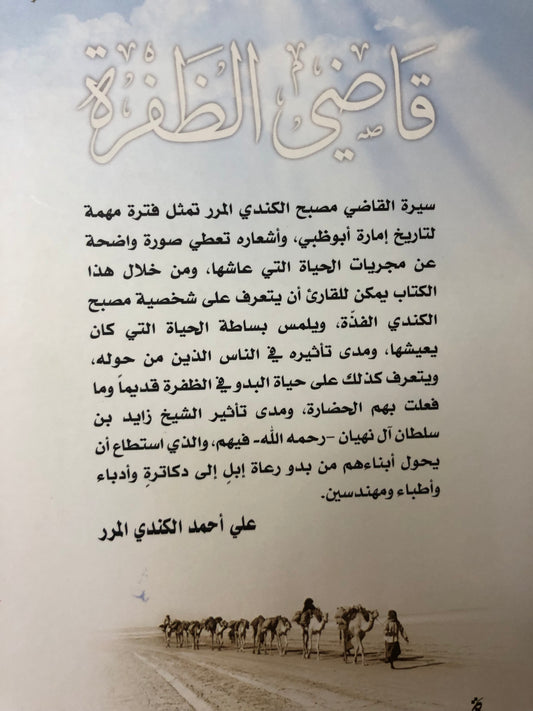 قَاضِي الظَفْرَة
سيرة القاضي مصبح الكندي المرر تمثل فترة مهمة
لتاريخ إمارة أبوظبي، وأشعاره تعطي صورة واضحة
عن مجريات الحياة التي عاشها، ومن خلال هذا
الكتاب يمكن للقارئ أن يتعرف على شخصية مصبح
الكندي الفذّة، ويلمس بساطة الحياة التي كان
يعيشها، ومدى تأثيره في الناس الذين من حوله،
ويتعرف كذلك على حياة البدو في الظفرة قديماً وما
فعلت بهم الحضارة، ومدى تأثير الشيخ زايد بن
سلطان آل نهيان -رحمه الله- فيهم، والذي استطاع أن
يحول أبناءهم من بدو رعاة إبلٍ إلى دكاترةٍ وأدباء
وأطباء ومهندسين.
علي أحمد الكندي المرر